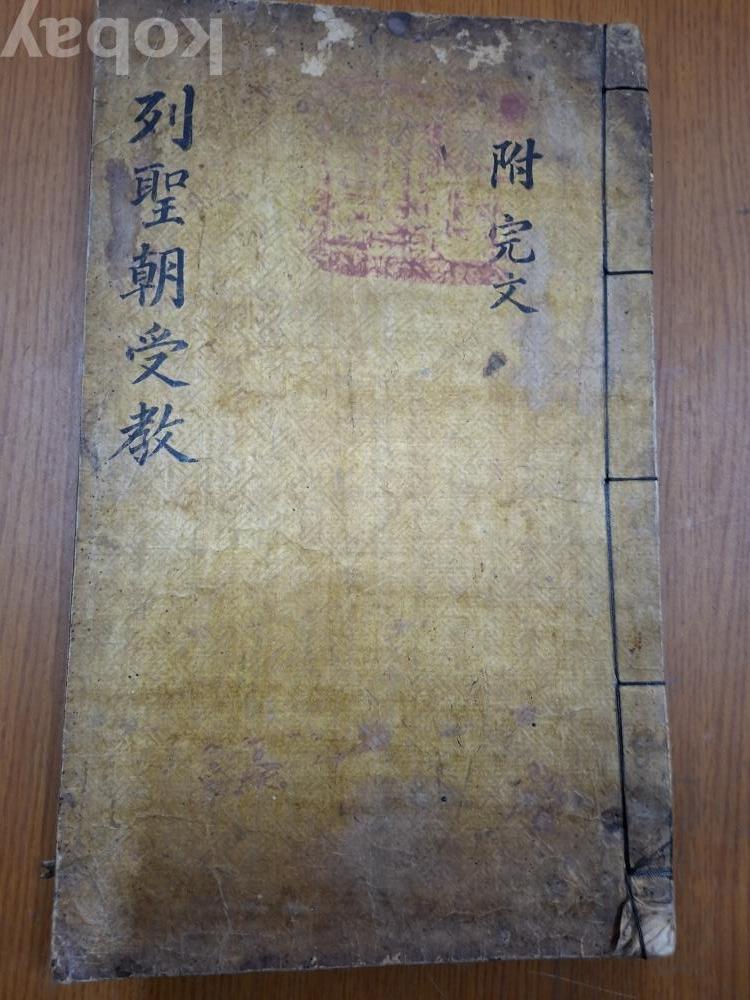 kobay
附完文
列聖朝受教